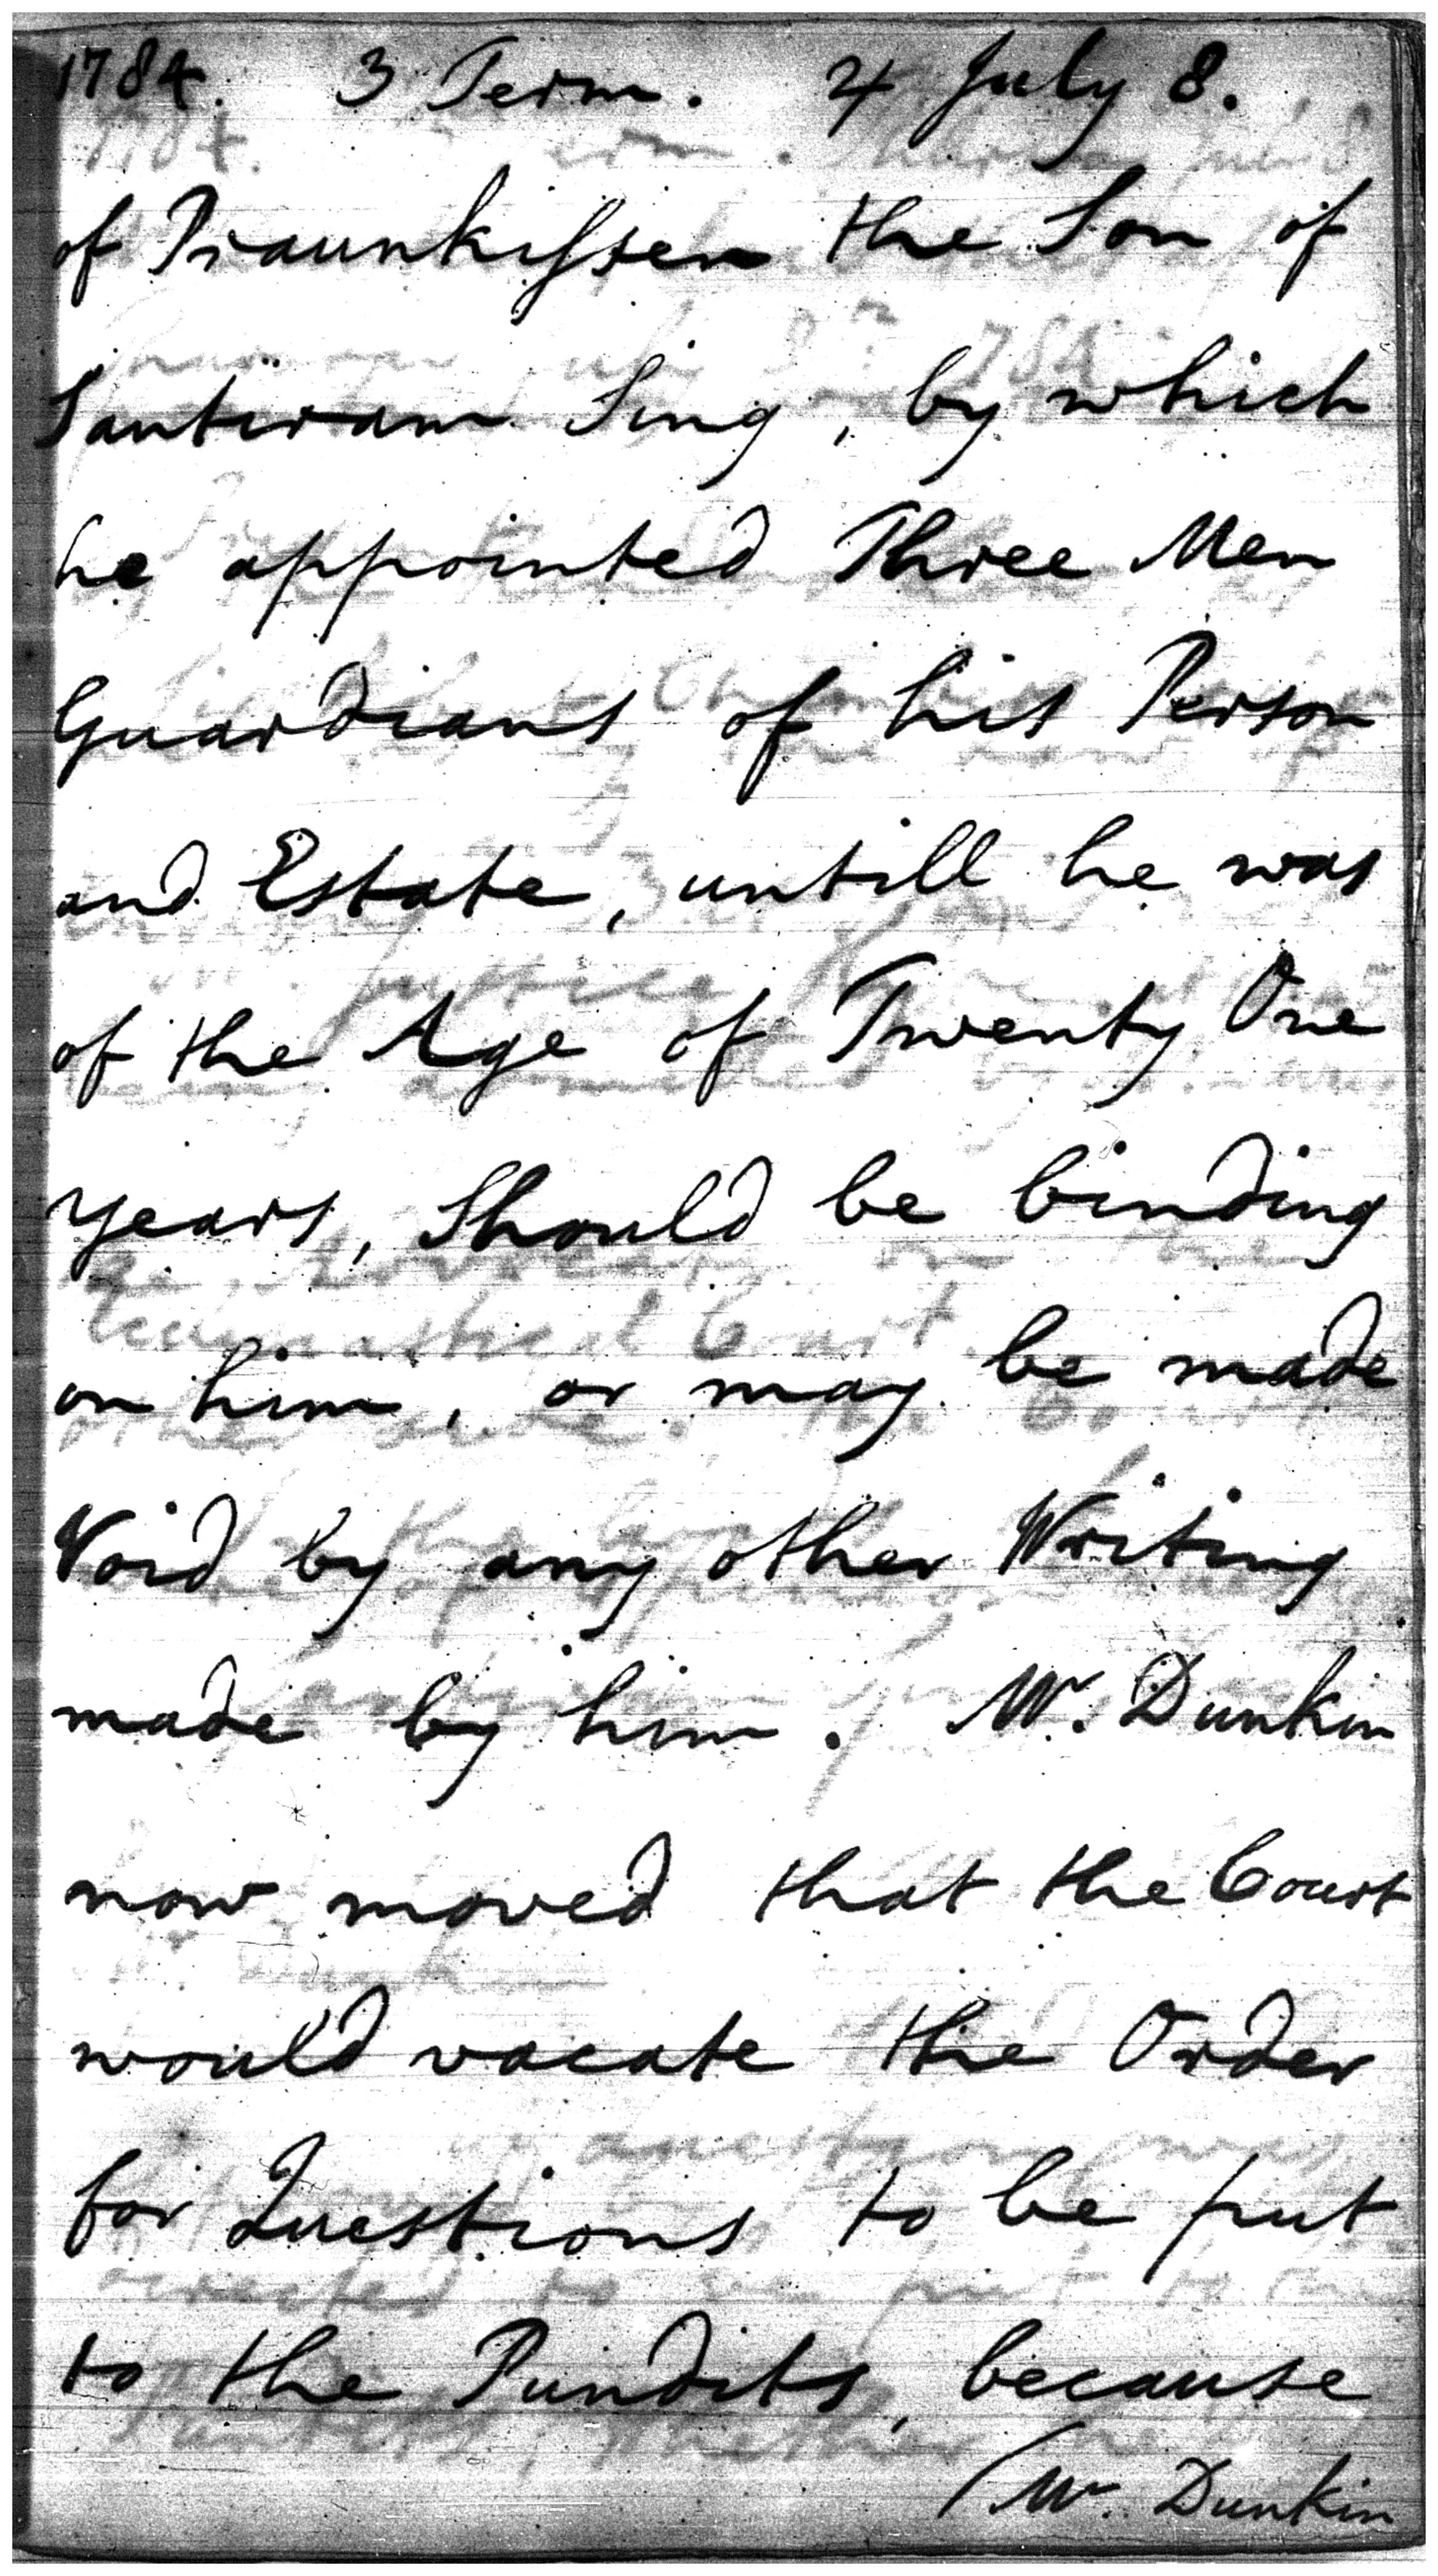 1784. 3 Term. 4 July 8.
of Praunkissen the Son of
Santiram Sing, by which
he appointed Three Men
Guardians of his Person
and Estate, untill he was
of the Age of Twenty One
years, Should be binding
on him, or may be made
Void by any other Writing
made by him. Mr. Dunkin
now moved that the Court
would vacate the Order
for Questions to be put
to the Pundits, because
(Mr. Dunkin